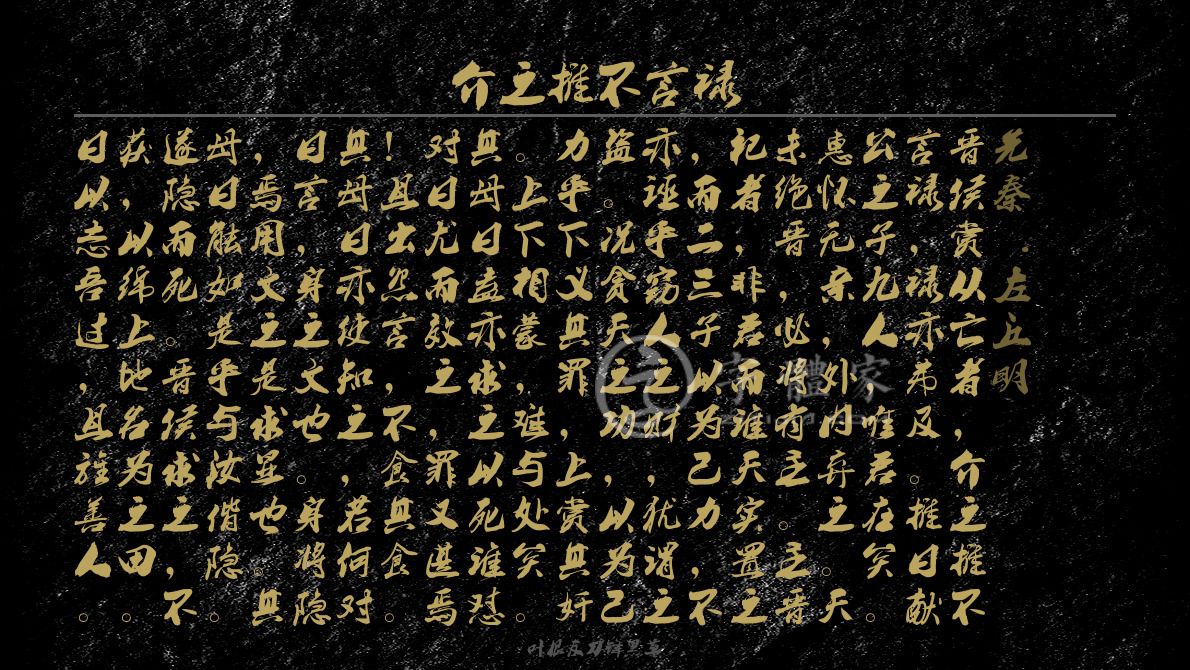 介之推不言禄
先秦.左丘明
晋侯赏从亡者，介之推不
言禄，禄亦弗及。推曰献
公之子九人，唯君在矣。
惠怀无亲，外内弃之。天
未绝晋，必将有主。主晋
祀者，非君而谁。天实置
之，而二三子以为己力，不
亦诬乎。窃人之财，犹谓之
盗。况贪天之功，以为己
力乎。下义其罪，上赏其奸
。上下相蒙，难与处矣。
其母曰盍亦求之，以死谁怼
。对曰尤而效之，罪又甚焉
！且出怨言，不食其食。
其母曰亦使知之，若何。对
曰言，身之文也。身将隐
，焉用文之。是求显也。其
母曰能如是乎，与汝偕隐。
遂隐而死。晋侯求之，不
获，以绵上为之田。
曰以志吾过，且旌善人。
字體家
叶根友刀锋黑草